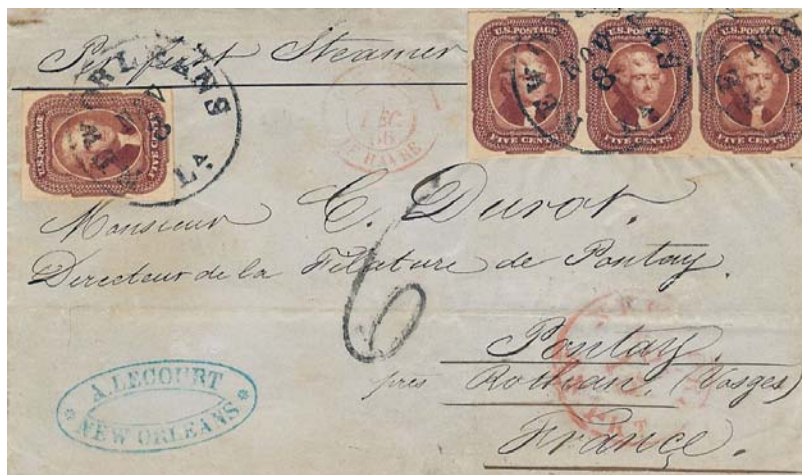 Per first Steamer
U.S. POSTAGE
FIVE CENTS
U.S. POSTAGE
FIVE CENTS
U.S. POSTAGE
FIVE CENTS
U.S. POSTAGE
FIVE CENTS
ORLEANS
La
NOV
8
LE HAVRE
6
Monsieur C. Durot.
Directeur de la Filature de Pontay.
Pontay
près Rothau, (Vosges)
France.
A. LECOURT
NEW ORLEANS